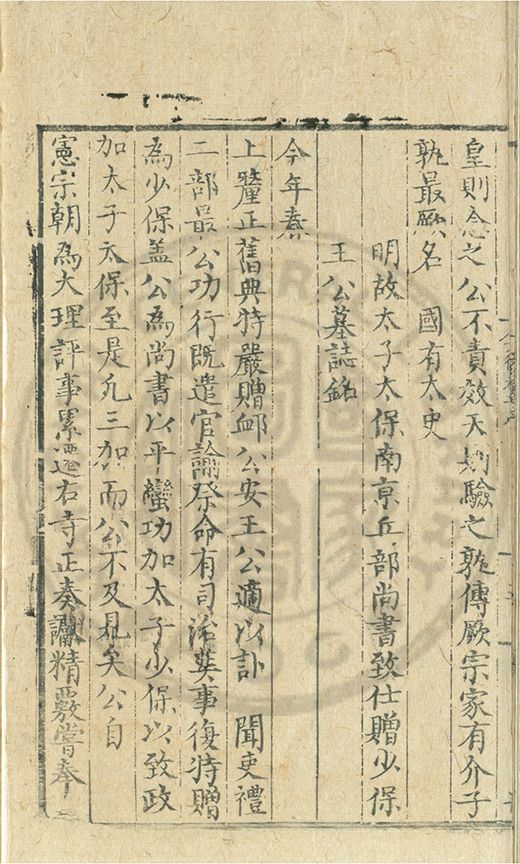 皇則念之公不責效天則驗之孰傳厥宗家有介子
孰最厥名　國有太史
明故太子太保南京兵部尚書致仕贈少保
王公墓誌銘
今年春
上釐正舊典特嚴贈䘏公安王公適以訃　聞吏禮
二部最公功行既遣官諭祭命有司治葬事復特贈
為少保盖公為尚書以平蠻功加太子少保以致政
加太子太保至是凡三加而公不及見矣公自
憲宗朝為大理評事累遷右寺正奏讞精覈嘗奉